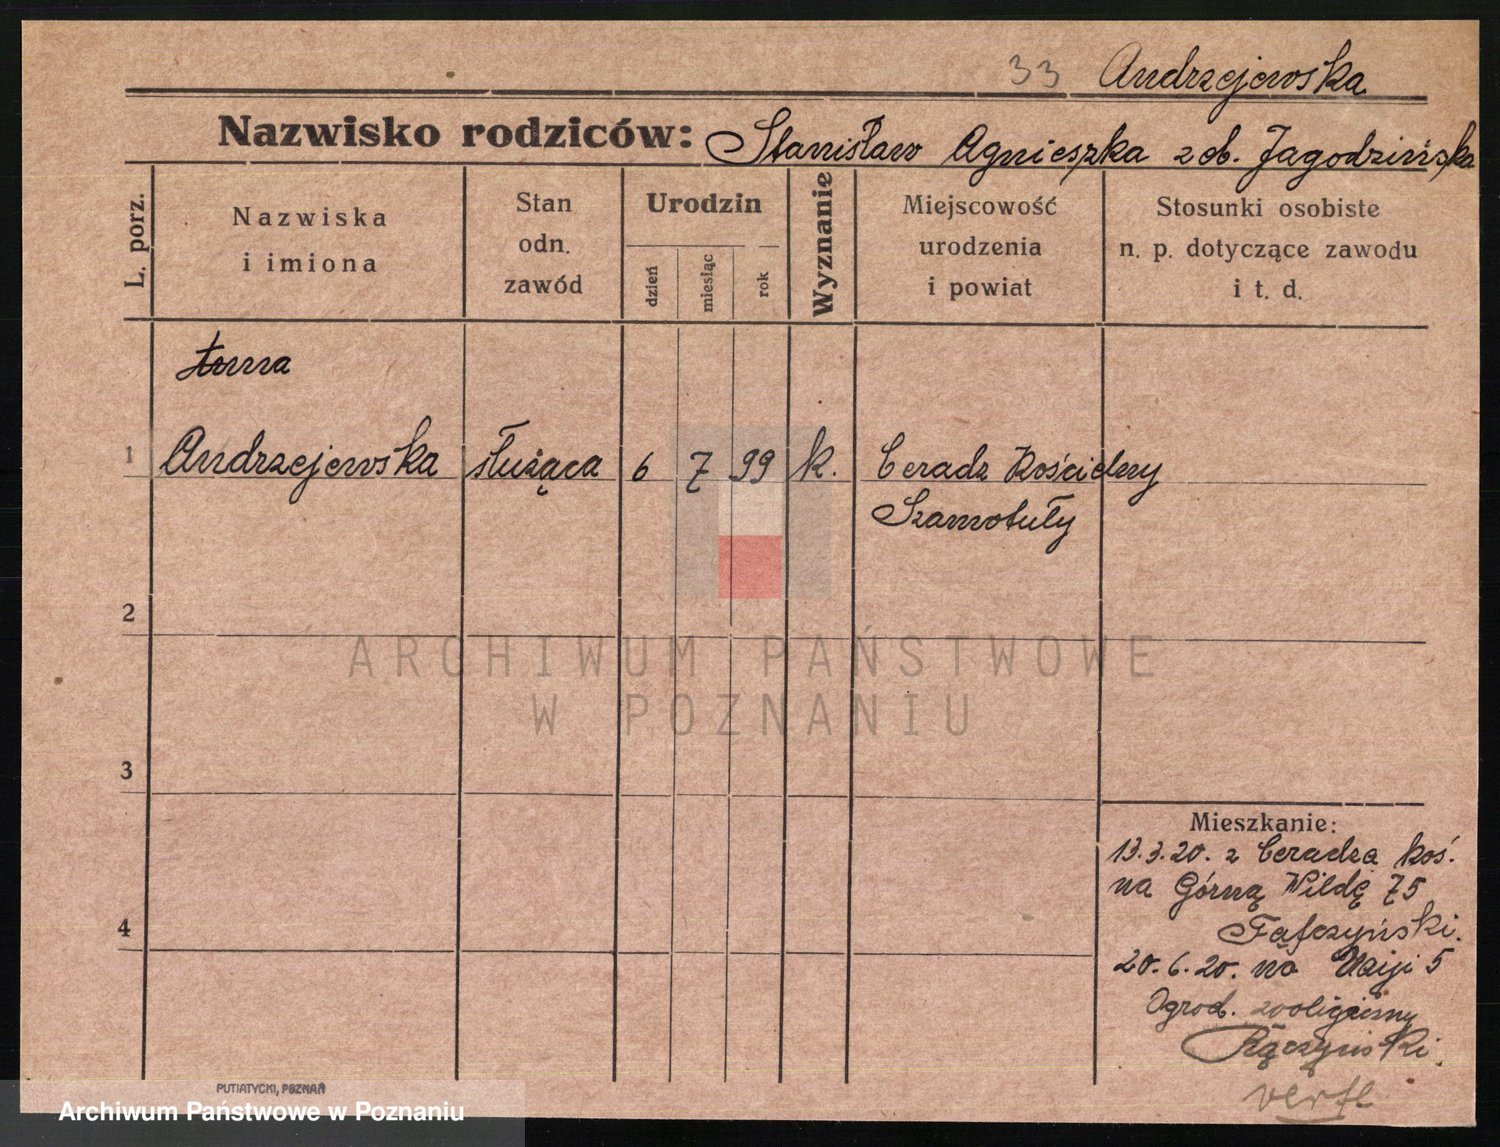 33 Andrzejewska
Nazwisko rodziców: Stanisław Agnieszka z d. Jagodzińska
L. porz.
Nazwiska
i imiona
Stan
odn.
zawód
Urodzin
dzień
miesiąc
rok
Wyznanie
Miejscowość
urodzenia
i powiat
Stosunki osobiste
n. p. dotyczące zawodu
i t. d.
Anna
1 Andrzejewska służąca 6 7 99 k. Ceradz Kościelny
Szamotuły
2
ARCHIWUM PAŃSTWOWE
W POZNANIU
3
Mieszkanie:
13.3.20. z Ceradza koś.
na Górną Wildę 75
4
20.6.20. na 5
Ogrod.
PUTIATYCKI, POZNAŃ
Archiwum Państwowe w Poznaniu